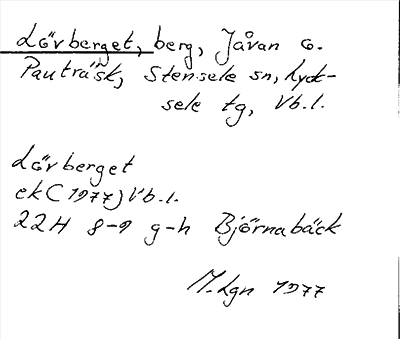 Lövberget, berg, Jåvan o.
Pauträsk, Stensele sn, Lyck-
sele tg, Vb.l.
Lövberget
ek (1977) Vb.l.
22H 8-9 g-h Björnabäck
M.Lgn 1977